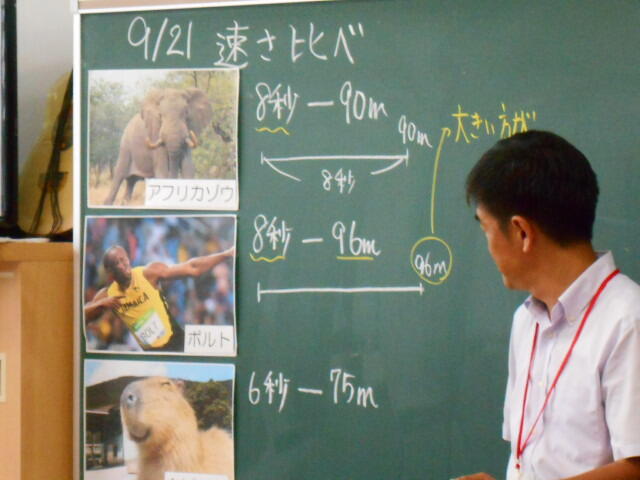 9/21 速さ比べ
8秒 — 90m
90m
8秒
アフリカゾウ
大きい方が
8秒 — 96m
96m
JAMAICA
BOLT
ボルト
6秒 — 75m